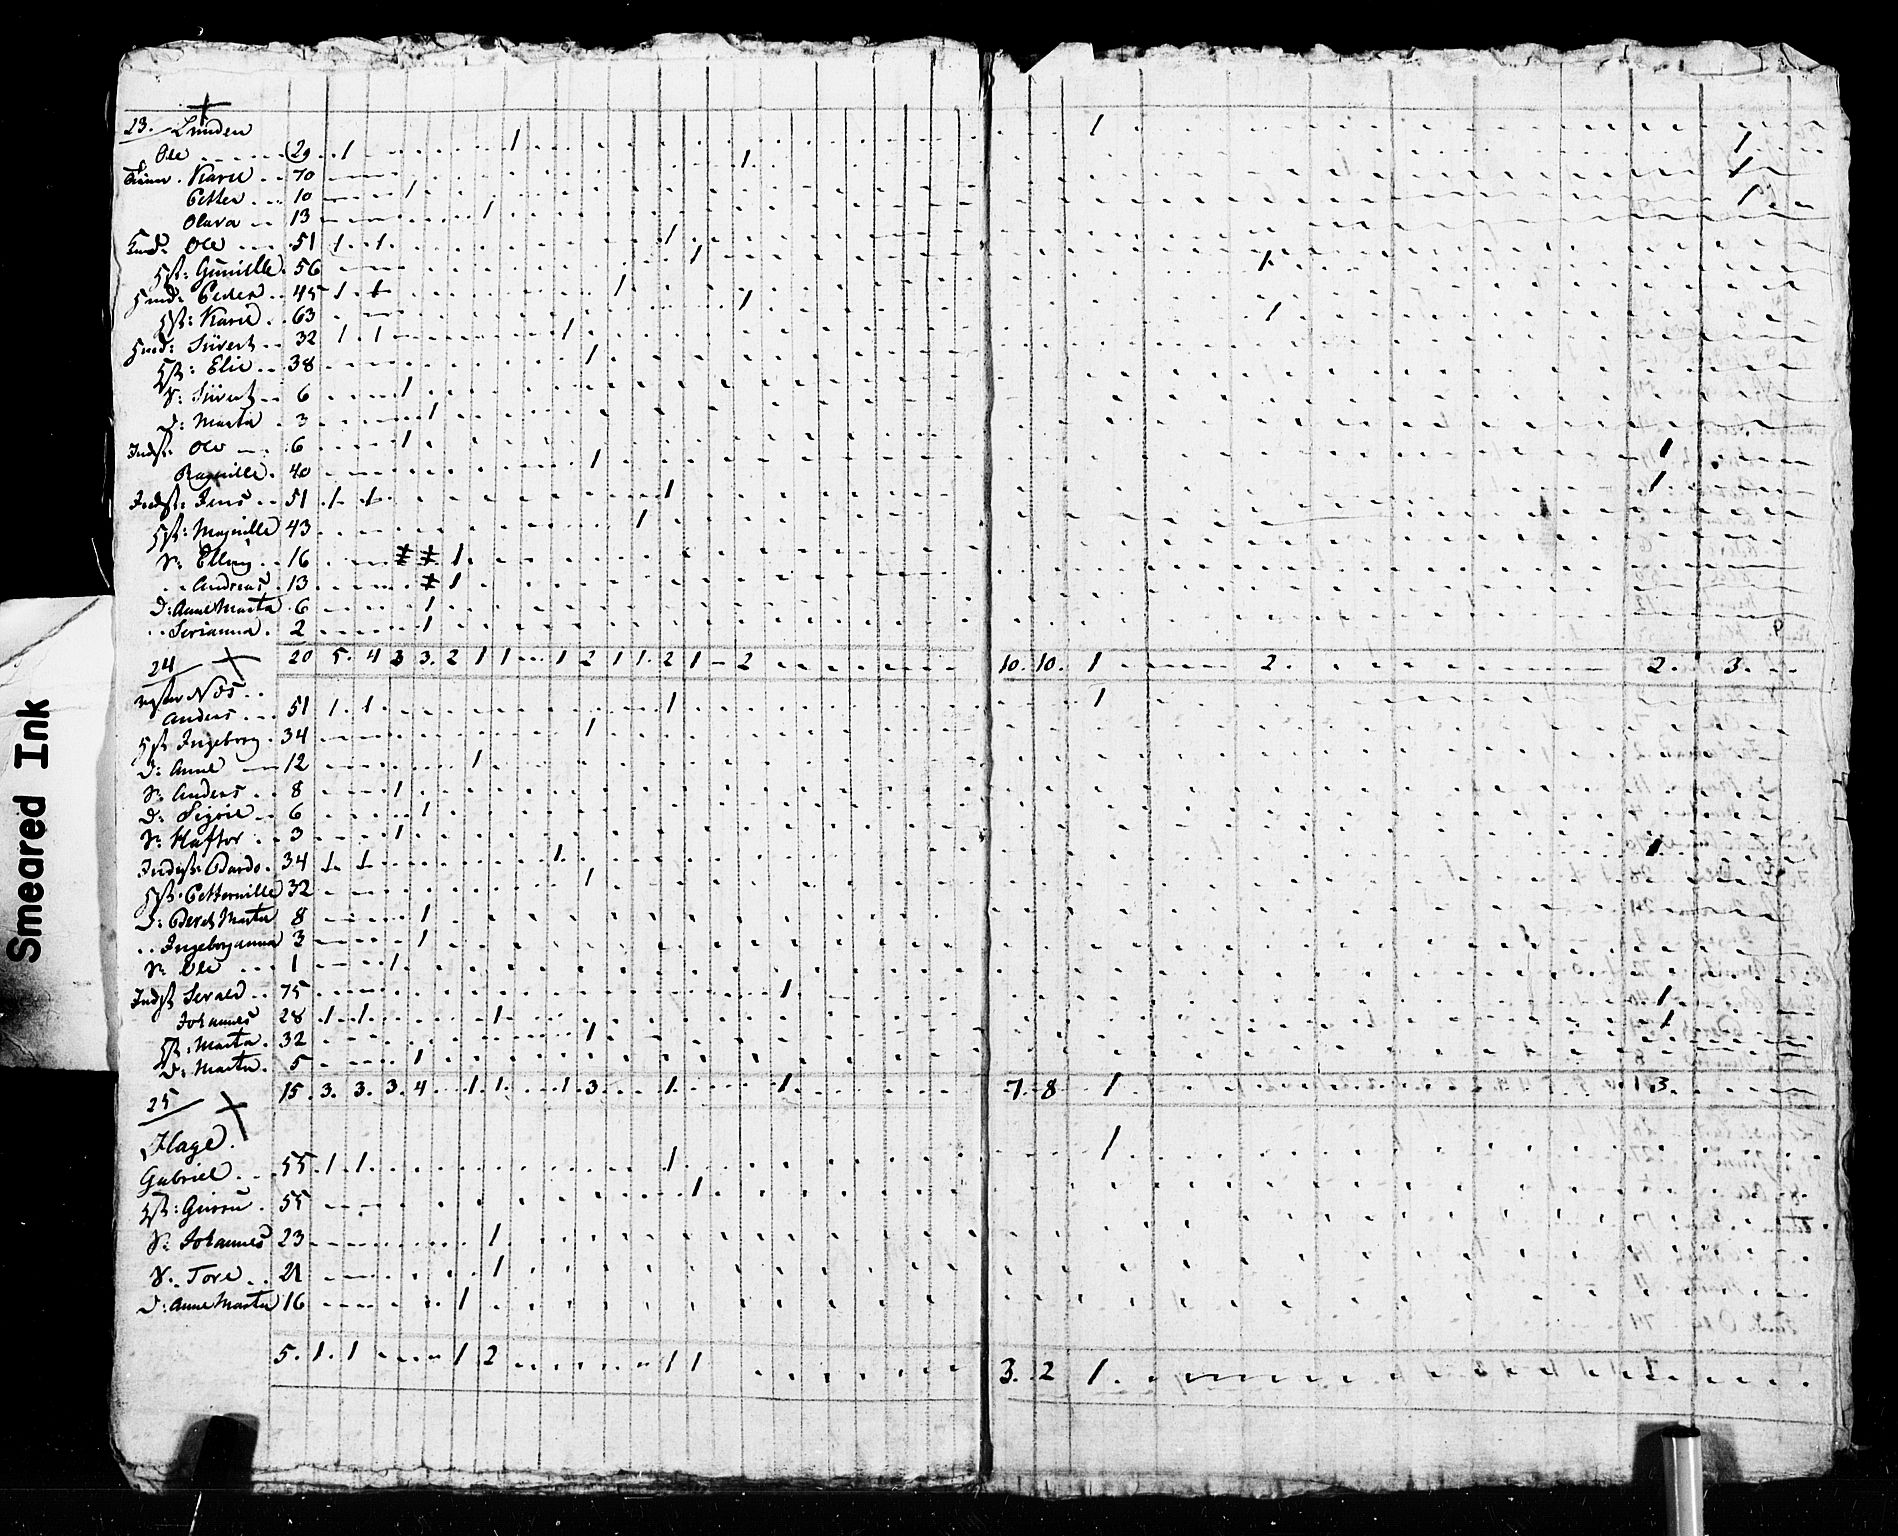 23. Lunden
Ole 29 1 1 1
Karie 70 1 1
Petter 10 1 1
Olava 13 1 1
Ole 51 1 1 1
Gunille 56 1
Peder 45 1 1 1 1
Karie 63 1
32 1 1 1 1
Elie 38 1
S: 6 1
D: Marta 3 1
Inds: Ole 6 1 1
40 1 1
Inds: Jens 51 1 1 1 1
43 1
S: Elling 16 1
Andreas 13 1
D: Anne Marta 6 1
2 1
20 5 4 3 3 2 1 1 1 2 1 1 2 1 2 10 10 1 2 2 3
24
Næs
Anders 51 1 1 1 1
Ingeborg 34 1
D: Anne 12 1
S: Anders 8 1
D: 6 1
S: Haftor 3 1
34 1 1 1 1
32 1
D: Marta 8 1
Ingeborganna 3 1
S: Ole 1 1
75 1 1
Johannes 28 1 1 1 1
Marta 32 1
D: Marta 5 1
15 3 3 3 4 1 1 1 3 1 1 7 8 1 1 3
25
Hage
Gabriel 55 1 1 1 1
55 1
S: Johannes 23 1
S: Tore 21 1
D: Anne Marta 16 1
5 1 1 1 2 1 1 3 2 1
Smeared Ink